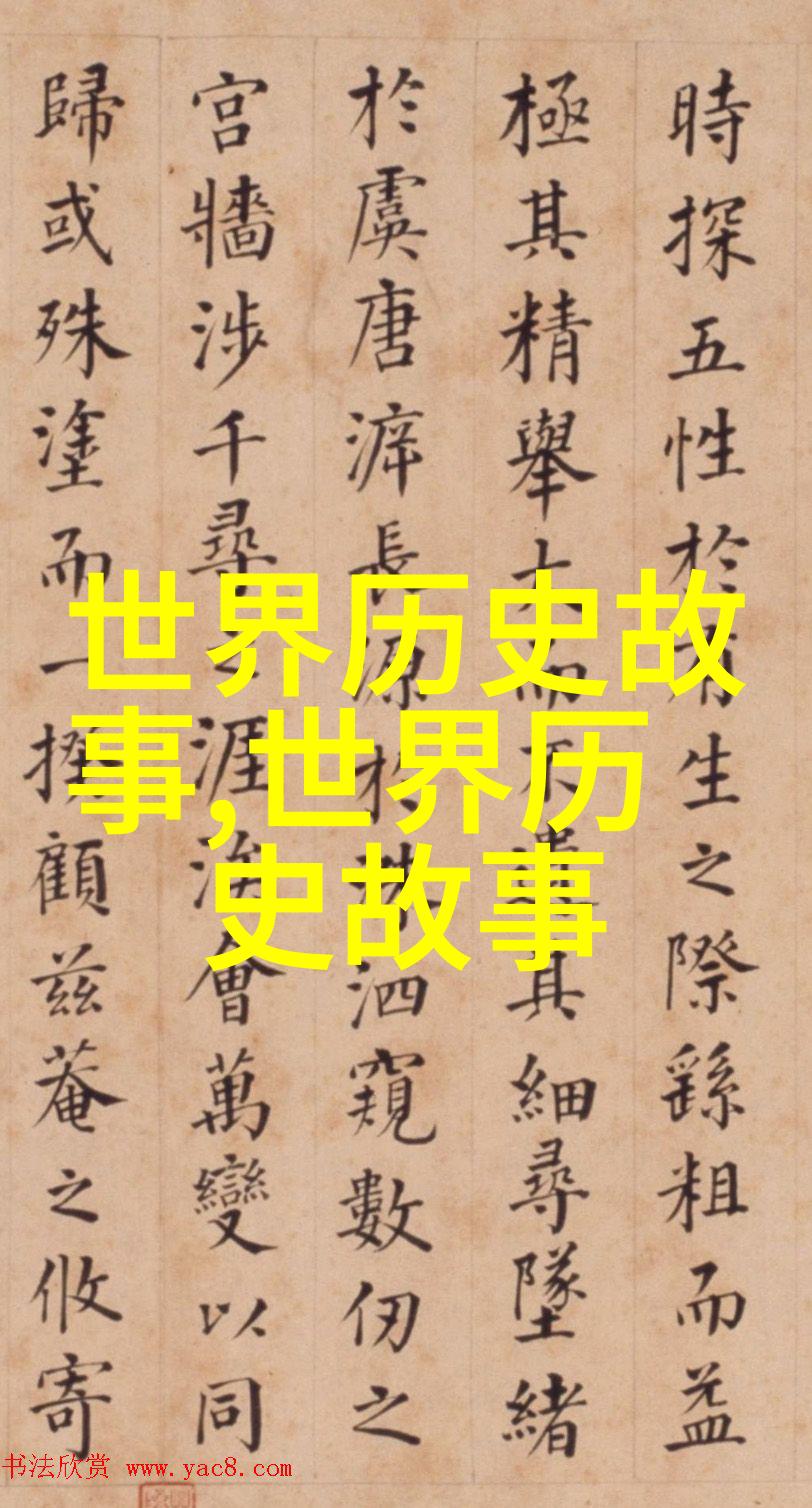 時探五性於有生之際繇粗而益
極其精舉大而不遺其細尋墜緒
於虞唐長源於洙泗窺數仞之
宮牆涉千尋之涯涘會萬變以同
歸或殊塗而一揆顧茲菴之攸寄
世界历史故
事,世界历
史故事
书法欣赏 www.yac8.com